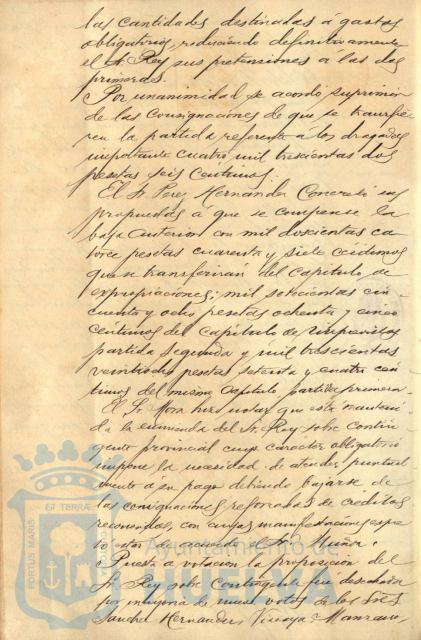 las cantidades destinadas á gastos
obligatorios, reduciendo definitivamente
el Sr. Rey sus pretensiones a las dos
primeras.
Por unanimidad se acordo suprimir
de las Consignaciones de que se transfie
ren la partida referente a los dragados
importante cuatro mil trescientas dos
pesetas seis centimos.
El Sr. Perez Hernandez Concretó sus
propuestas a que se compense la
baja anterior con mil doscientas ca
torce pesetas cuarenta y siete céntimos
que se transferirán del capitulo de
expropiaciones; mil setecientas cin
cuenta y ocho pesetas ochenta y cinco
centimos del Capitulo de imprevistos
partida segunda y mil trescientas
veintiocho pesetas setenta y cuatro cen
timos del mismo Capitulo partida primera.
El Sr. Mora hizo notar que está manteni
da la enmienda del Sr. Rey sobre contin
gente provincial cuyo caracter obligatorio
impone la necesidad de atender puntual
mente á su pago debiendo bajarse de
las consignaciones reforzadas de creditos
reconocidos, con cuyas manifestaciones
estar de acuerdo el Sr. Muñoz.
Puesta a votacion la proposicion del
Sr. Rey sobre Contingente fue desechada
por mayoria de nueve votos de los Sres
Sanchez Hernandez Vizcaya Manzano,
PORTUS MARIS ET TERRÆ
Ayuntamiento de
HUELVA